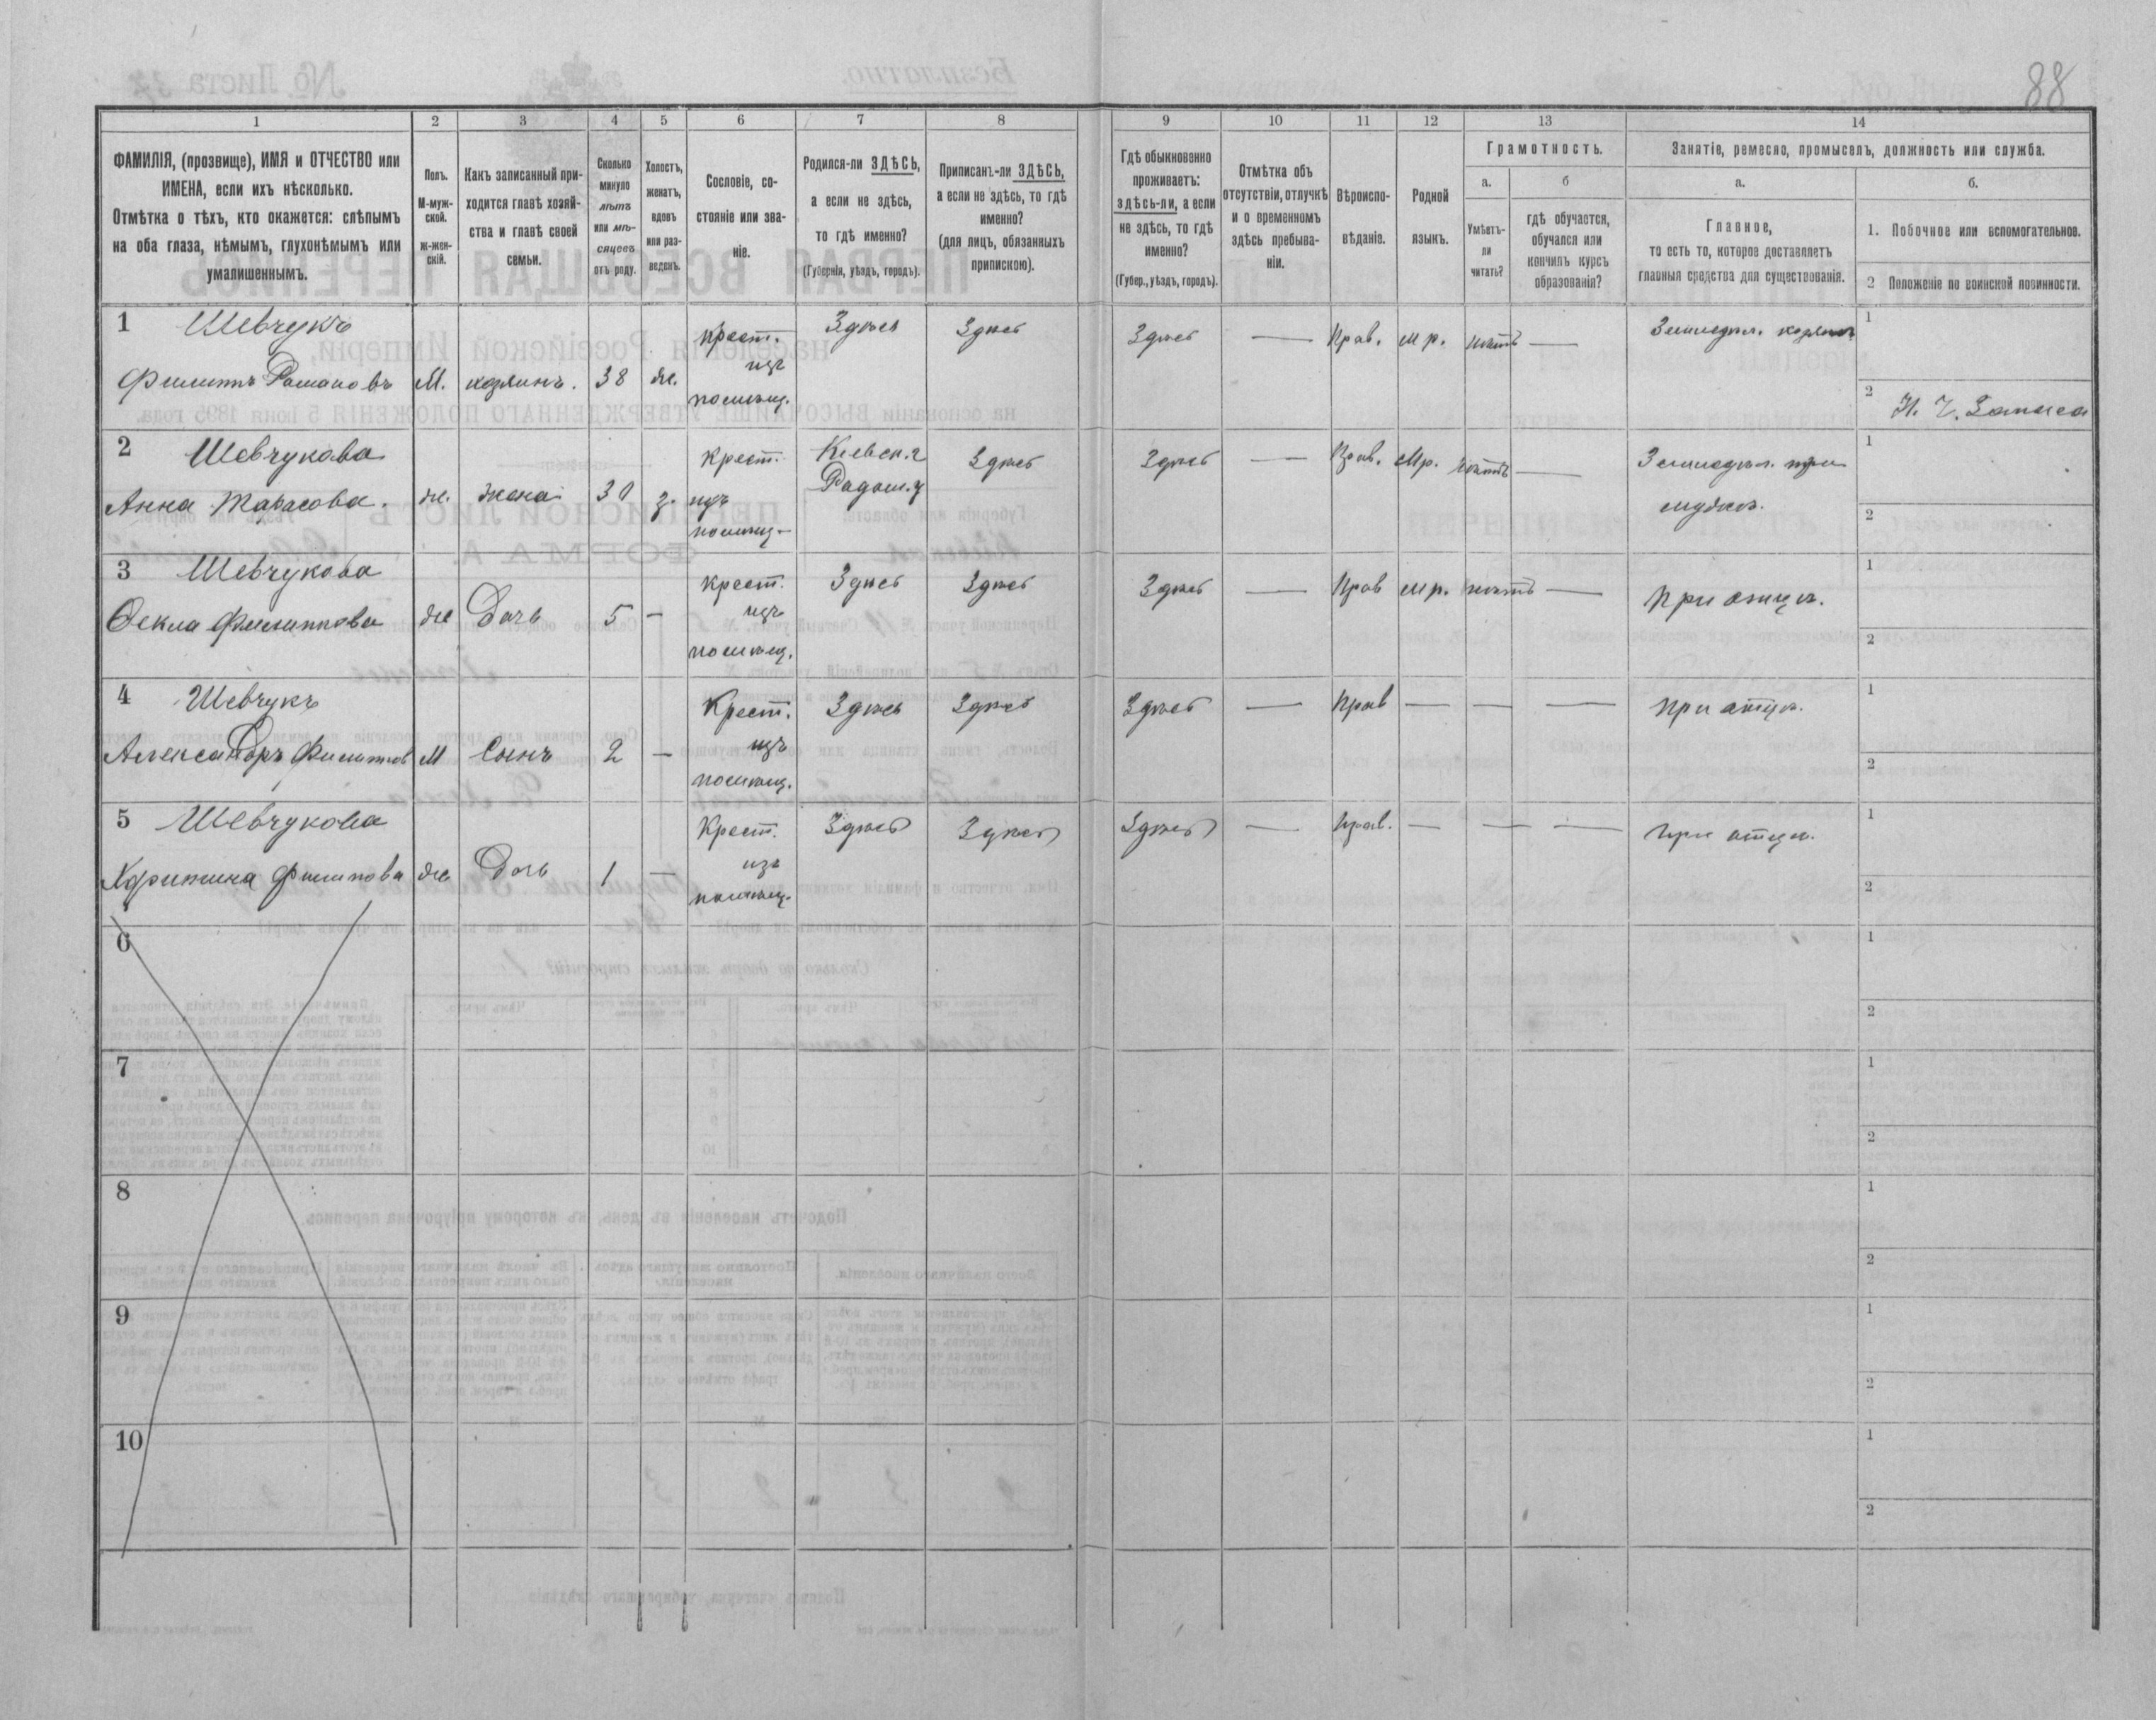 88
1 2 3 4 5 6 7 8 9 10 11 12 13 14
ФАМИЛІЯ, (прозвище), ИМЯ и ОТЧЕСТВО или
ИМЕНА, если ихъ нѣсколько.
Отмѣтка о тѣхъ, кто окажется: слѣпымъ
на оба глаза, нѣмымъ, глухонѣмымъ или
умалишеннымъ.
Полъ.
М-муж-
ской.
Ж-жен-
скій.
Какъ записанный при-
ходится главѣ хозяй-
ства и главѣ своей
семьи.
Сколько
минуло
лѣтъ
или мѣ-
сяцевъ
отъ роду.
Холостъ,
женатъ,
вдовъ
или раз-
веденъ.
Сословіе, со-
стояніе или зва-
ніе.
Родился-ли ЗДѢСЬ,
а если не здѣсь,
то гдѣ именно?
(Губернія, уѣздъ, городъ).
Приписанъ-ли ЗДѢСЬ,
а если не здѣсь, то гдѣ
именно?
(для лицъ, обязанныхъ
припискою).
Гдѣ обыкновенно
проживаетъ:
здѣсь-ли, а если
не здѣсь, то гдѣ
именно?
(Губер., уѣздъ, городъ).
Отмѣтка объ
отсутствіи, отлучкѣ
и о временномъ
здѣсь пребыва-
ніи.
Вѣроиспо-
вѣданіе.
Родной
языкъ.
Грамотность.
а.
Умѣетъ-
ли
читать?
б
гдѣ обучается,
обучался или
кончилъ курсъ
образованія?
Занятіе, ремесло, промыселъ, должность или служба.
а.
Главное,
то есть то, которое доставляетъ
главныя средства для существованія.
б.
1. Побочное или вспомогательное.
2 Положеніе по воинской повинности.
1 Шевчукъ
Филиппъ Романовъ М. хозяинъ. 38 ж. крест. изъ помѣщ. Здѣсь Здѣсь Здѣсь — Прав. мр. нѣтъ — Земледѣл. хозяинъ
1
2 Н. Ч. Запаса
2 Шевчукова
Анна Тарасова. ж. жена 30 з. крест. изъ помѣщ. Кіевск. г Радом. у Здѣсь Здѣсь — Прав. Мр. нѣтъ — Земледѣл. при мужѣ.
1
2
3 Шевчукова
Ѳекла Филиппова ж Дочь 5 — крест. изъ помѣщ. Здѣсь Здѣсь Здѣсь — Прав мр. нѣтъ — При отцѣ.
1
2
4 Шевчукъ
Александръ Филиппов М Сынъ 2 — Крест. изъ помѣщ. Здѣсь Здѣсь Здѣсь — Прав — — — При отцѣ.
1
2
5 Шевчукова
Христина Филипова ж Дочь 1 — Крест. изъ помѣщ. Здѣсь Здѣсь Здѣсь — Прав. — — — при отцѣ.
1
2
6
1
2
7
1
2
8
1
2
9
1
2
10
1
2